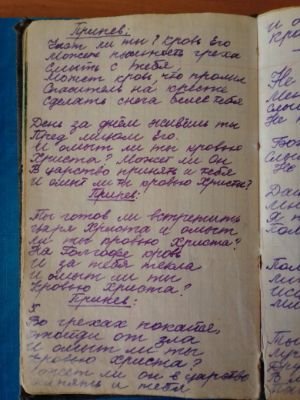 Припев:
Знает ли ты? Кровь его
Может нечистость греха
Смыть с тебя,
Может кровь, что пролил
Спаситель на кресте
Сделать снега белее тебя
День за днём живёшь ты
Пред ликом его.
И омыт ли ты кровью
Христа? Может ли он
В царство принять и тебя
И омыт ли ты кровью Христа?
Припев:
Ты готов ли встретить
царя Христа и омыт
ли ты кровью Христа?
На Голгофе кровь
и за тебя текла
И омыт ли ты
кровью Христа?
Припев:
Во грехах покайся,
отойди от зла
и омыт ли ты
кровью Христа?
Может ли он в царство
принять и тебя